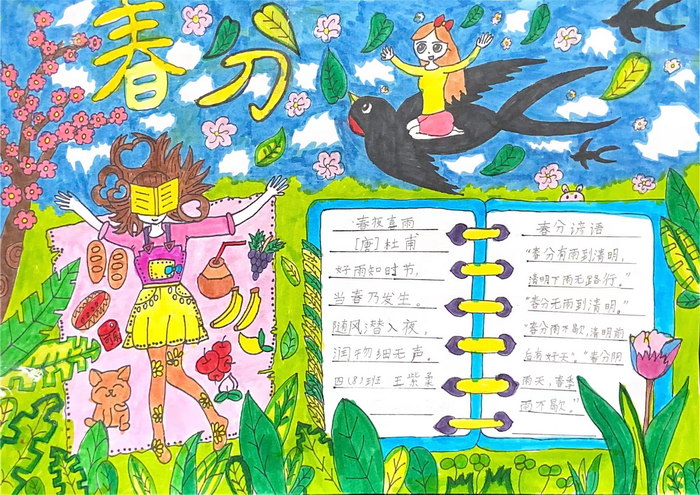 春分
春夜喜雨
[唐]杜甫
好雨知时节,
当春乃发生。
随风潜入夜,
润物细无声。
四(8)班 王紫柔
春分谚语
“春分有雨到清明,
清明下雨无路行。”
“春分无雨到清明。”
“春分雨不歇,清明前
后有好天。”“春分阴
雨天,春季
雨不歇。”